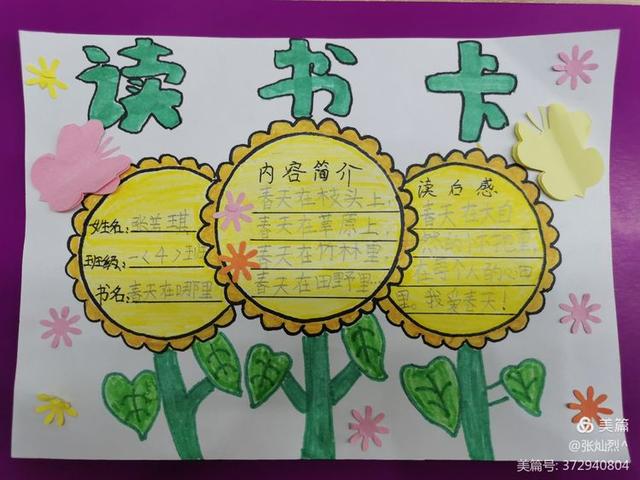 读书卡
姓名:张芸琪
班级:一〈4〉班
书名:春天在哪里
内容简介
春天在枝头上,
春天在草原上,
春天在竹林里
春天在田野里…
读后感
春天在大自
然的怀抱里,
在每个人的心田
里。我爱春天!
美篇
@张灿烈^
美篇号: 372940804